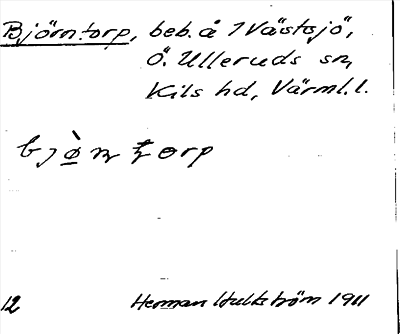 Björntorp, beb. å 1 Västsjö,
Ö. Ulleruds sn,
Kils hd, Värml. l.
bjø̀n torp
12 Herman Hultström 1911